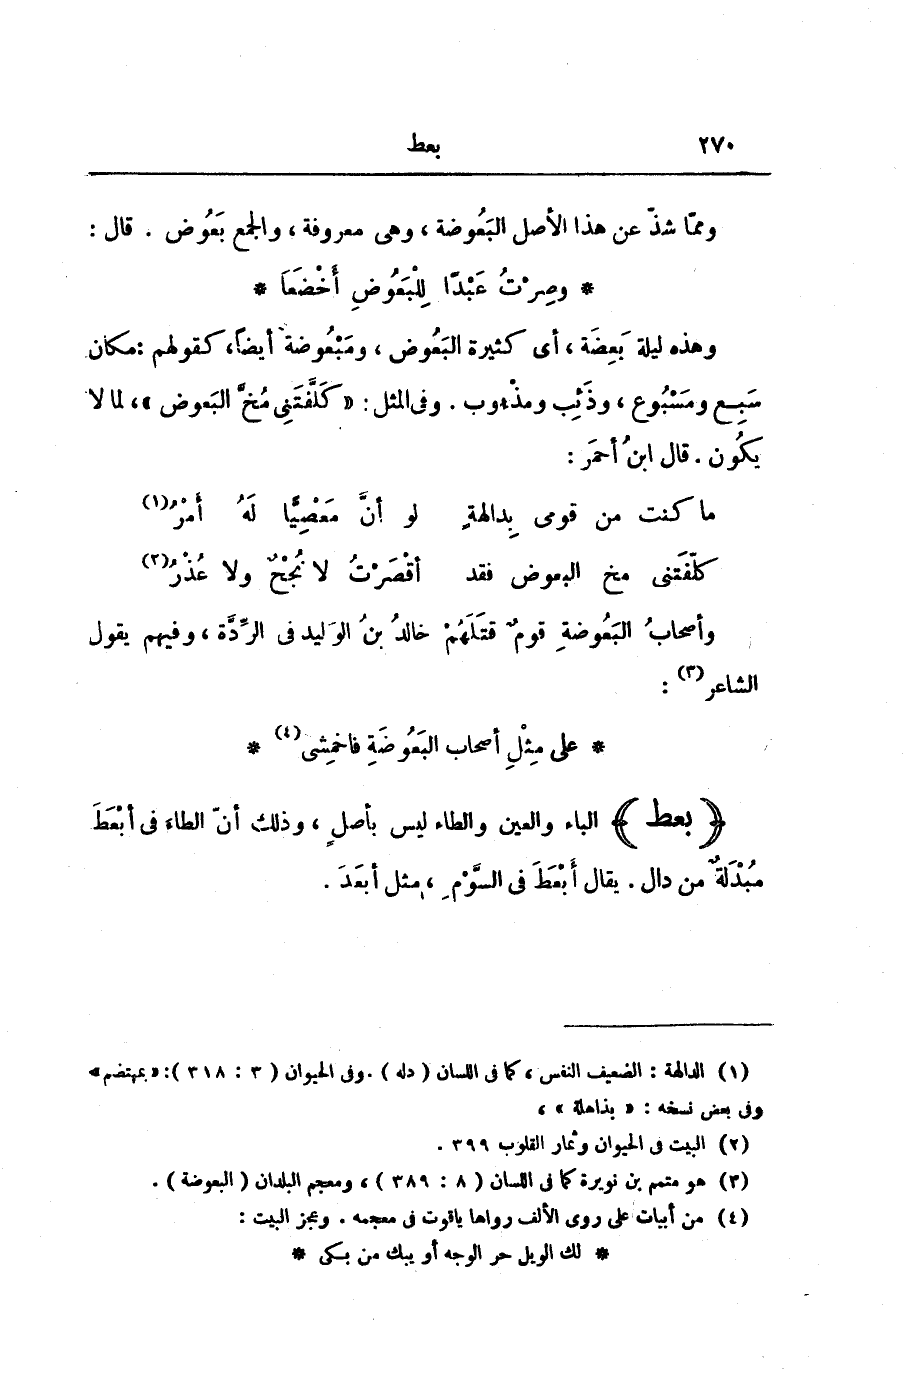 ٢٧٠ بعط
وممّا شذّ عن هذا الأصل البَعُوضة ، وهى معروفة ، والجمع بَعُوض . قال :
* وصِرْتُ عَبْدًا لِلْبَعُوضِ أَخْضَعَا *
وهذه ليلة بَعِضَة ، أى كثيرة البَعُوض ، ومَبْعُوضة أيضاً، كقولهم :مكان
سَبِع ومَسْبُوع ، وذَئِب ومذْءوب . وفى المثل : « كَلَّفَتَنِى مُخَّ البَعوض »، لما لا
يكُون . قال ابنُ أحمَر :
ما كنت من قومى بِدالهةٍ لو أنَّ مَعْصِيًّا لَهُ أَمْرُ(١)
كلّفَتنى مخ البعوض فقد أقْصَرْتُ لا نُجْحٌ ولا عُذْرُ(٢)
وأصحابُ البَعُوضةِ قومٌ قتَلَهُمْ خالدُ بنُ الوَليد فى الرِّدَّة ، وفيهم يقول
الشاعر(٣) :
* على مِثْلِ أصحاب البَعُوضَةِ فاخمِشى(٤) *
﴿ بعط ﴾ الباء والعين والطاء ليس بأصلٍ ، وذلك أنّ الطاءَ فى أبْعَطَ
مُبْدَلةٌ من دال . يقال أَبْعَطَ فى السَّوْمِ ، مثل أبعَدَ .
(١) الدالهة : الضعيف النفس ، كما فى اللسان ( دله ) . وفى الحيوان ( ٣ : ٣١٨ ): « بمهتضم »
وفى بعض نسخه : « بذاهلة » ،
(٢) البيت فى الحيوان وثمار القلوب ٣٩٩ .
(٣) هو متمم بن نويرة كما فى اللسان ( ٨ : ٣٨٩ ) ، ومعجم البلدان ( البعوضة ) .
(٤) من أبيات على روى الألف رواها ياقوت فى معجمه . وعجز البيت :
* لك الويل حر الوجه أو يبك من بكى *